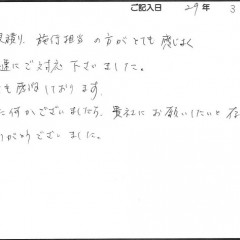 ご記入日 29年 3
見積り、施行担当の方がとても感じよく
速にご対応下さいました。
も感謝しております。
た何かございましたら、貴社にお願いしたいと
りがとうございました。